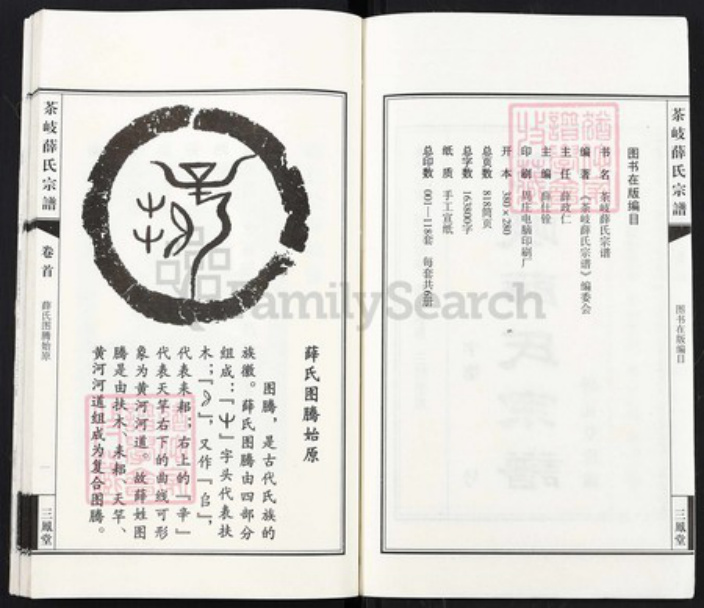 茶岐薛氏宗譜
图书在版编目
三鳳堂
图书在版编目
书 名 茶岐薛氏宗谱
编 著 《茶岐薛氏宗谱》编委会
主 任 薛政仁
主 编 薛仕铨
印 刷 周庄电脑印刷厂
开 本 380×280
总页数 818筒页
总字数 163800字
纸 质 手工宣纸
总印数 001—118套 每套共6册
薛氏图腾始原
图腾，是古代氏族的
族徽。薛氏图腾由四部分
组成：『屮』字头代表扶
木；『 』，又作『㠯』，
代表耒耜；右上的『辛』
代表天竿右下的曲线可形
象为黄河河道。故薛姓图
腾是由扶木、耒耜、天竿、
黄河河道组成为复合图腾。
茶岐薛氏宗譜
卷首
薛氏图腾始原
一
三鳳堂
FamilySearch